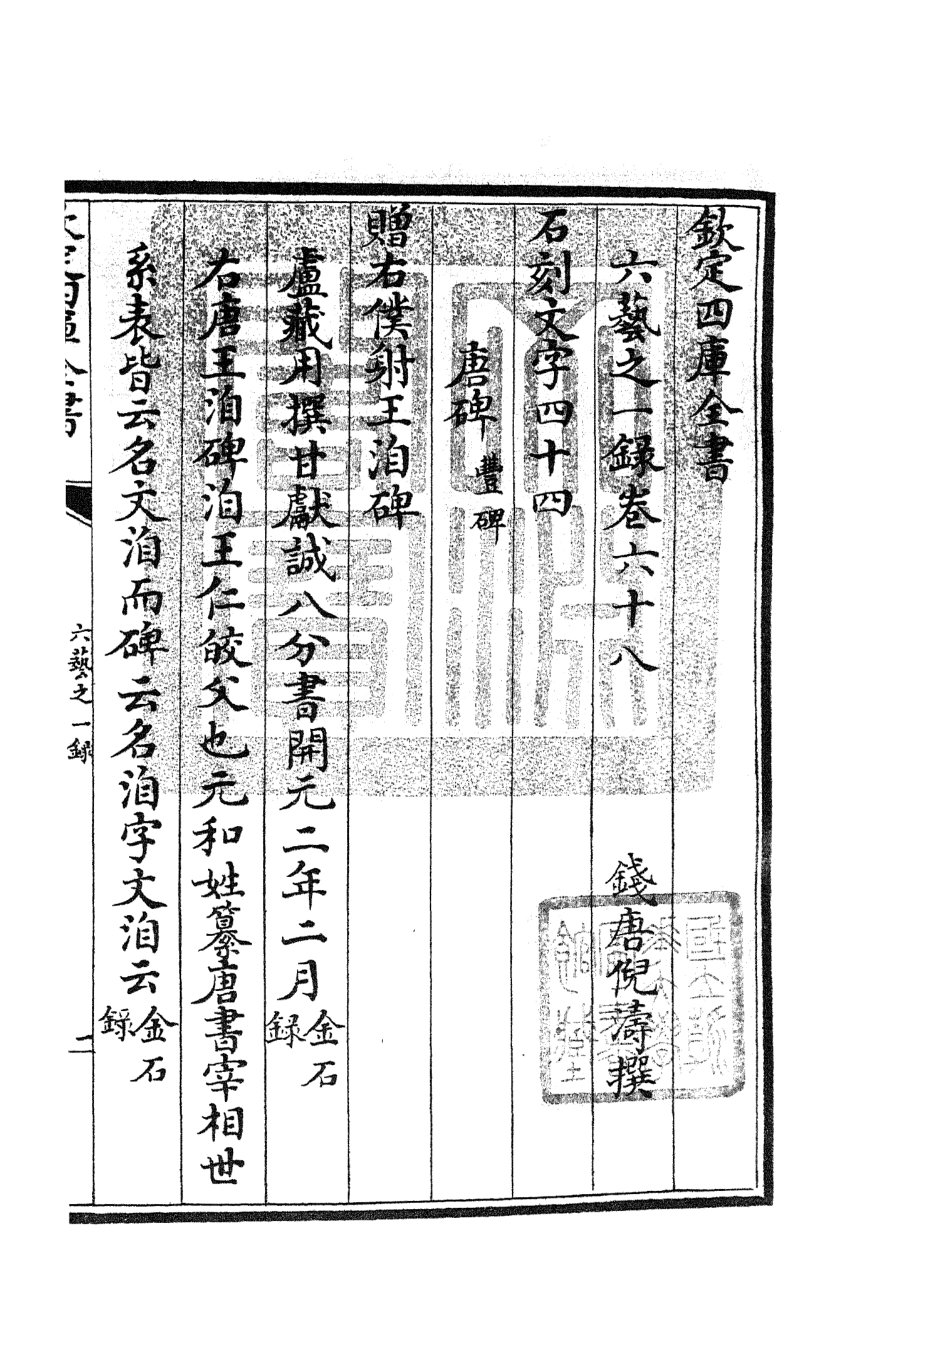 欽定四庫全書
六藝之一録卷六十八　錢唐倪濤撰
石刻文字四十四
唐碑 豐碑
贈右僕射王洎碑
盧藏用撰甘獻誠八分書開元二年二月金石録
右唐王洎碑洎王仁皎父也元和姓纂唐書宰相世
系表皆云名文洎而碑云名洎字文洎云金石録
欽定四庫全書
六藝之一録
二